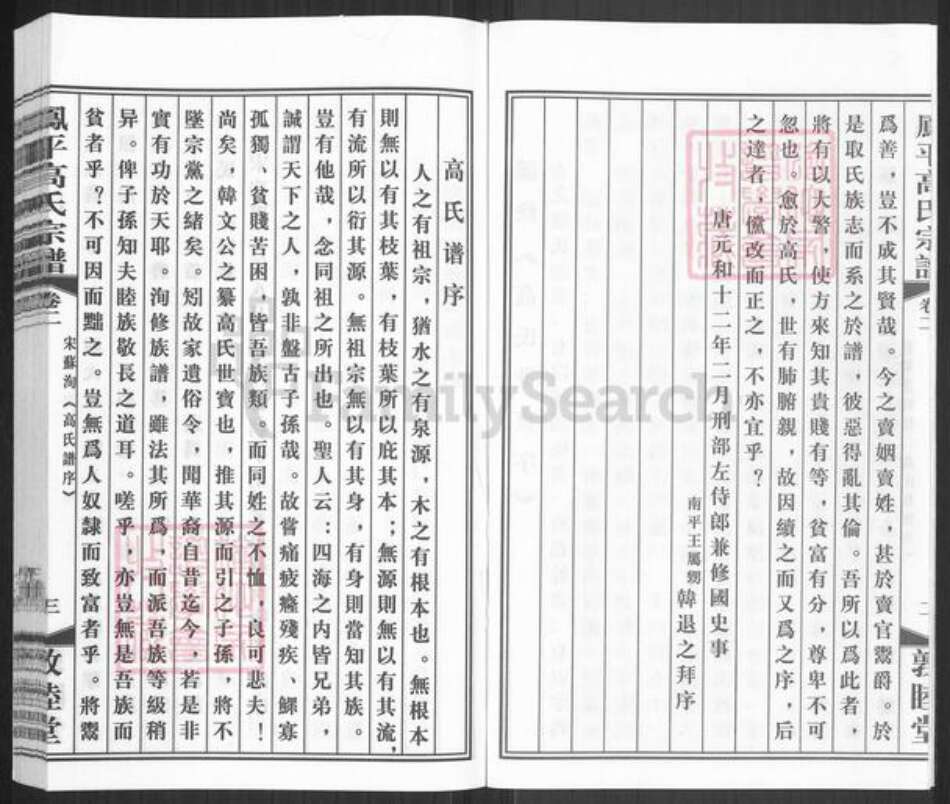 鳳平高氏宗譜
卷二
二
敦睦堂
爲善，豈不成其賢哉。今之賣姻賣姓，甚於賣官鬻爵。於
是取氏族志而系之於譜，彼惡得亂其倫。吾所以爲此者，
將有以大警，使方來知其貴賤有等，貧富有分，尊卑不可
忽也。愈於高氏，世有肺腑親，故因續之而又爲之序，后
之達者，儻改而正之，不亦宜乎？
唐元和十二年二月刑部左侍郎兼修國史事
南平王屬甥 韓退之拜序
高氏谱序
人之有祖宗，猶水之有泉源，木之有根本也。無根本
則無以有其枝葉，有枝葉所以庇其本；無源則無以有其流，
有流所以衍其源。無祖宗無以有其身，有身則當知其族。
豈有他哉，念同祖之所出也。聖人云：四海之内皆兄弟，
誠謂天下之人，孰非盤古子孫哉。故嘗痛疲癃殘疾、鰥寡
孤獨、貧賤苦困，皆吾族類。而同姓之不恤，良可悲夫！
尚矣，韓文公之纂高氏世寶也，推其源而引之子孫，將不
墜宗黨之緒矣。矧故家遺俗令，聞華裔自昔迄今，若是非
實有功於天耶。洵修族譜，雖法其所爲，而派吾族等級稍
异。俾子孫知夫睦族敬長之道耳。嗟乎，亦豈無是吾族而
貧者乎？不可因而黜之。豈無爲人奴隸而致富者乎。將鬻
鳳平高氏宗譜
卷二
宋蘇洵《高氏譜序》
三
敦睦堂
FamilySearch